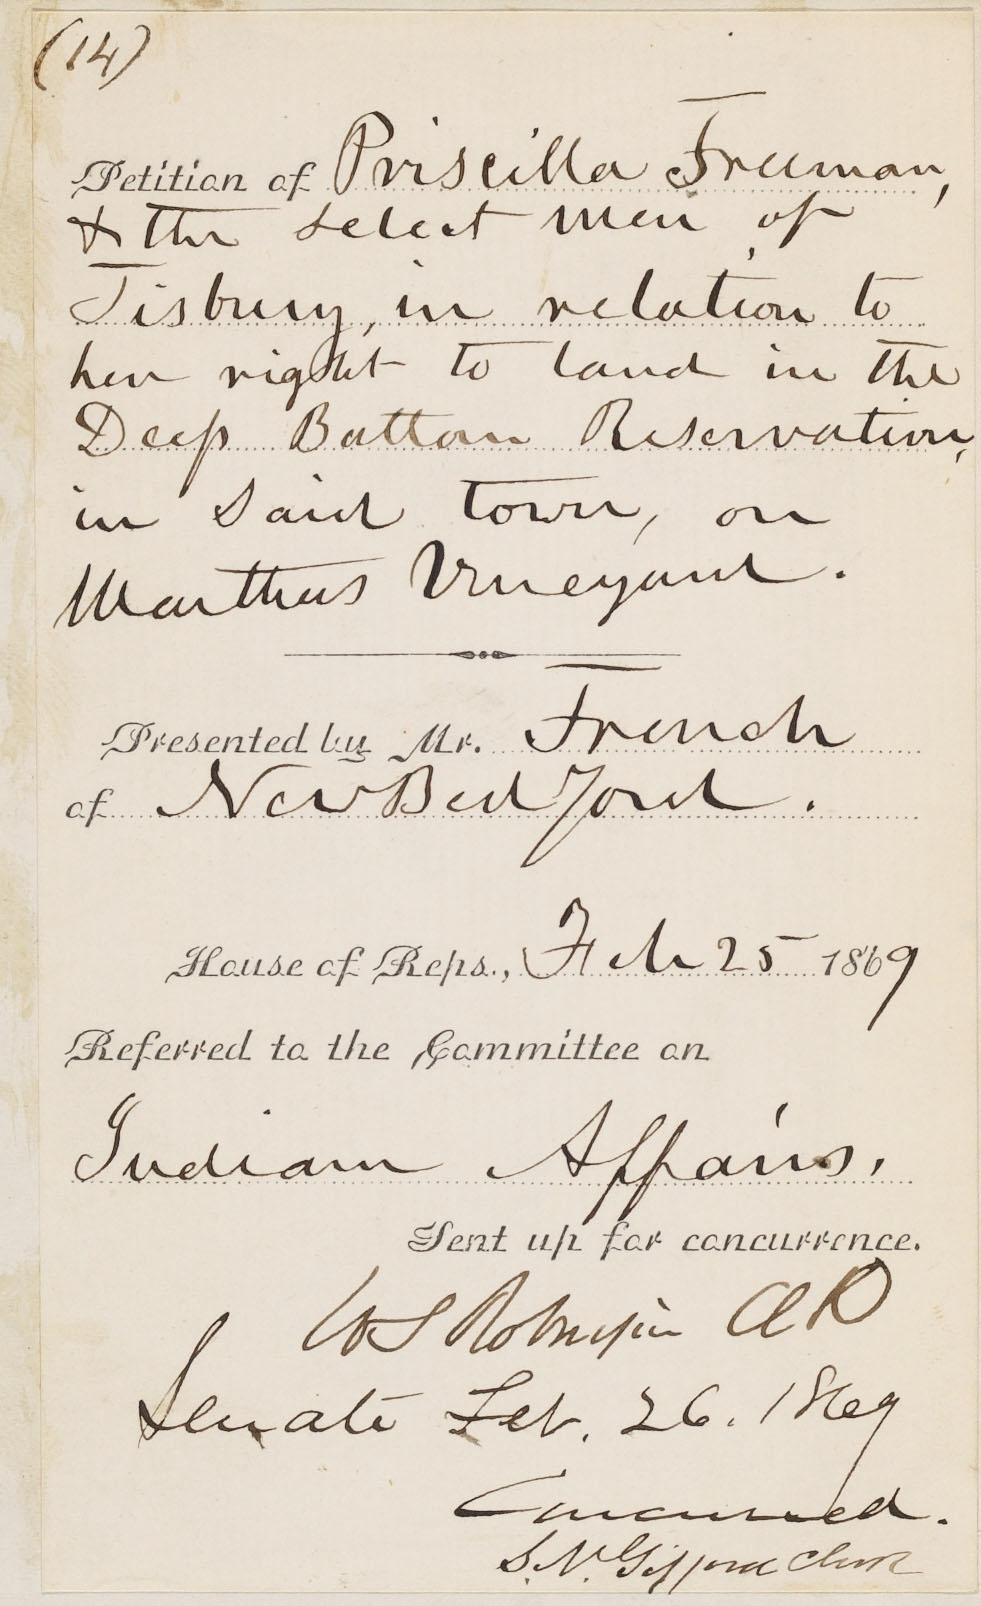 (14)
Petition of Priscilla Freeman,
& the select men of
Tisbury, in relation to
her right to land in the
Deep Bottom Reservation,
in said town, on
Marthas Vineyard.
Presented by Mr. French
of New Bedford.
House of Reps., Feb 25 1869
Referred to the Committee on
Indian Affairs.
Sent up for concurrence.
W S Robinson Clk
Senate Feb. 26. 1869
Concurred.
S. N. Gifford Clerk